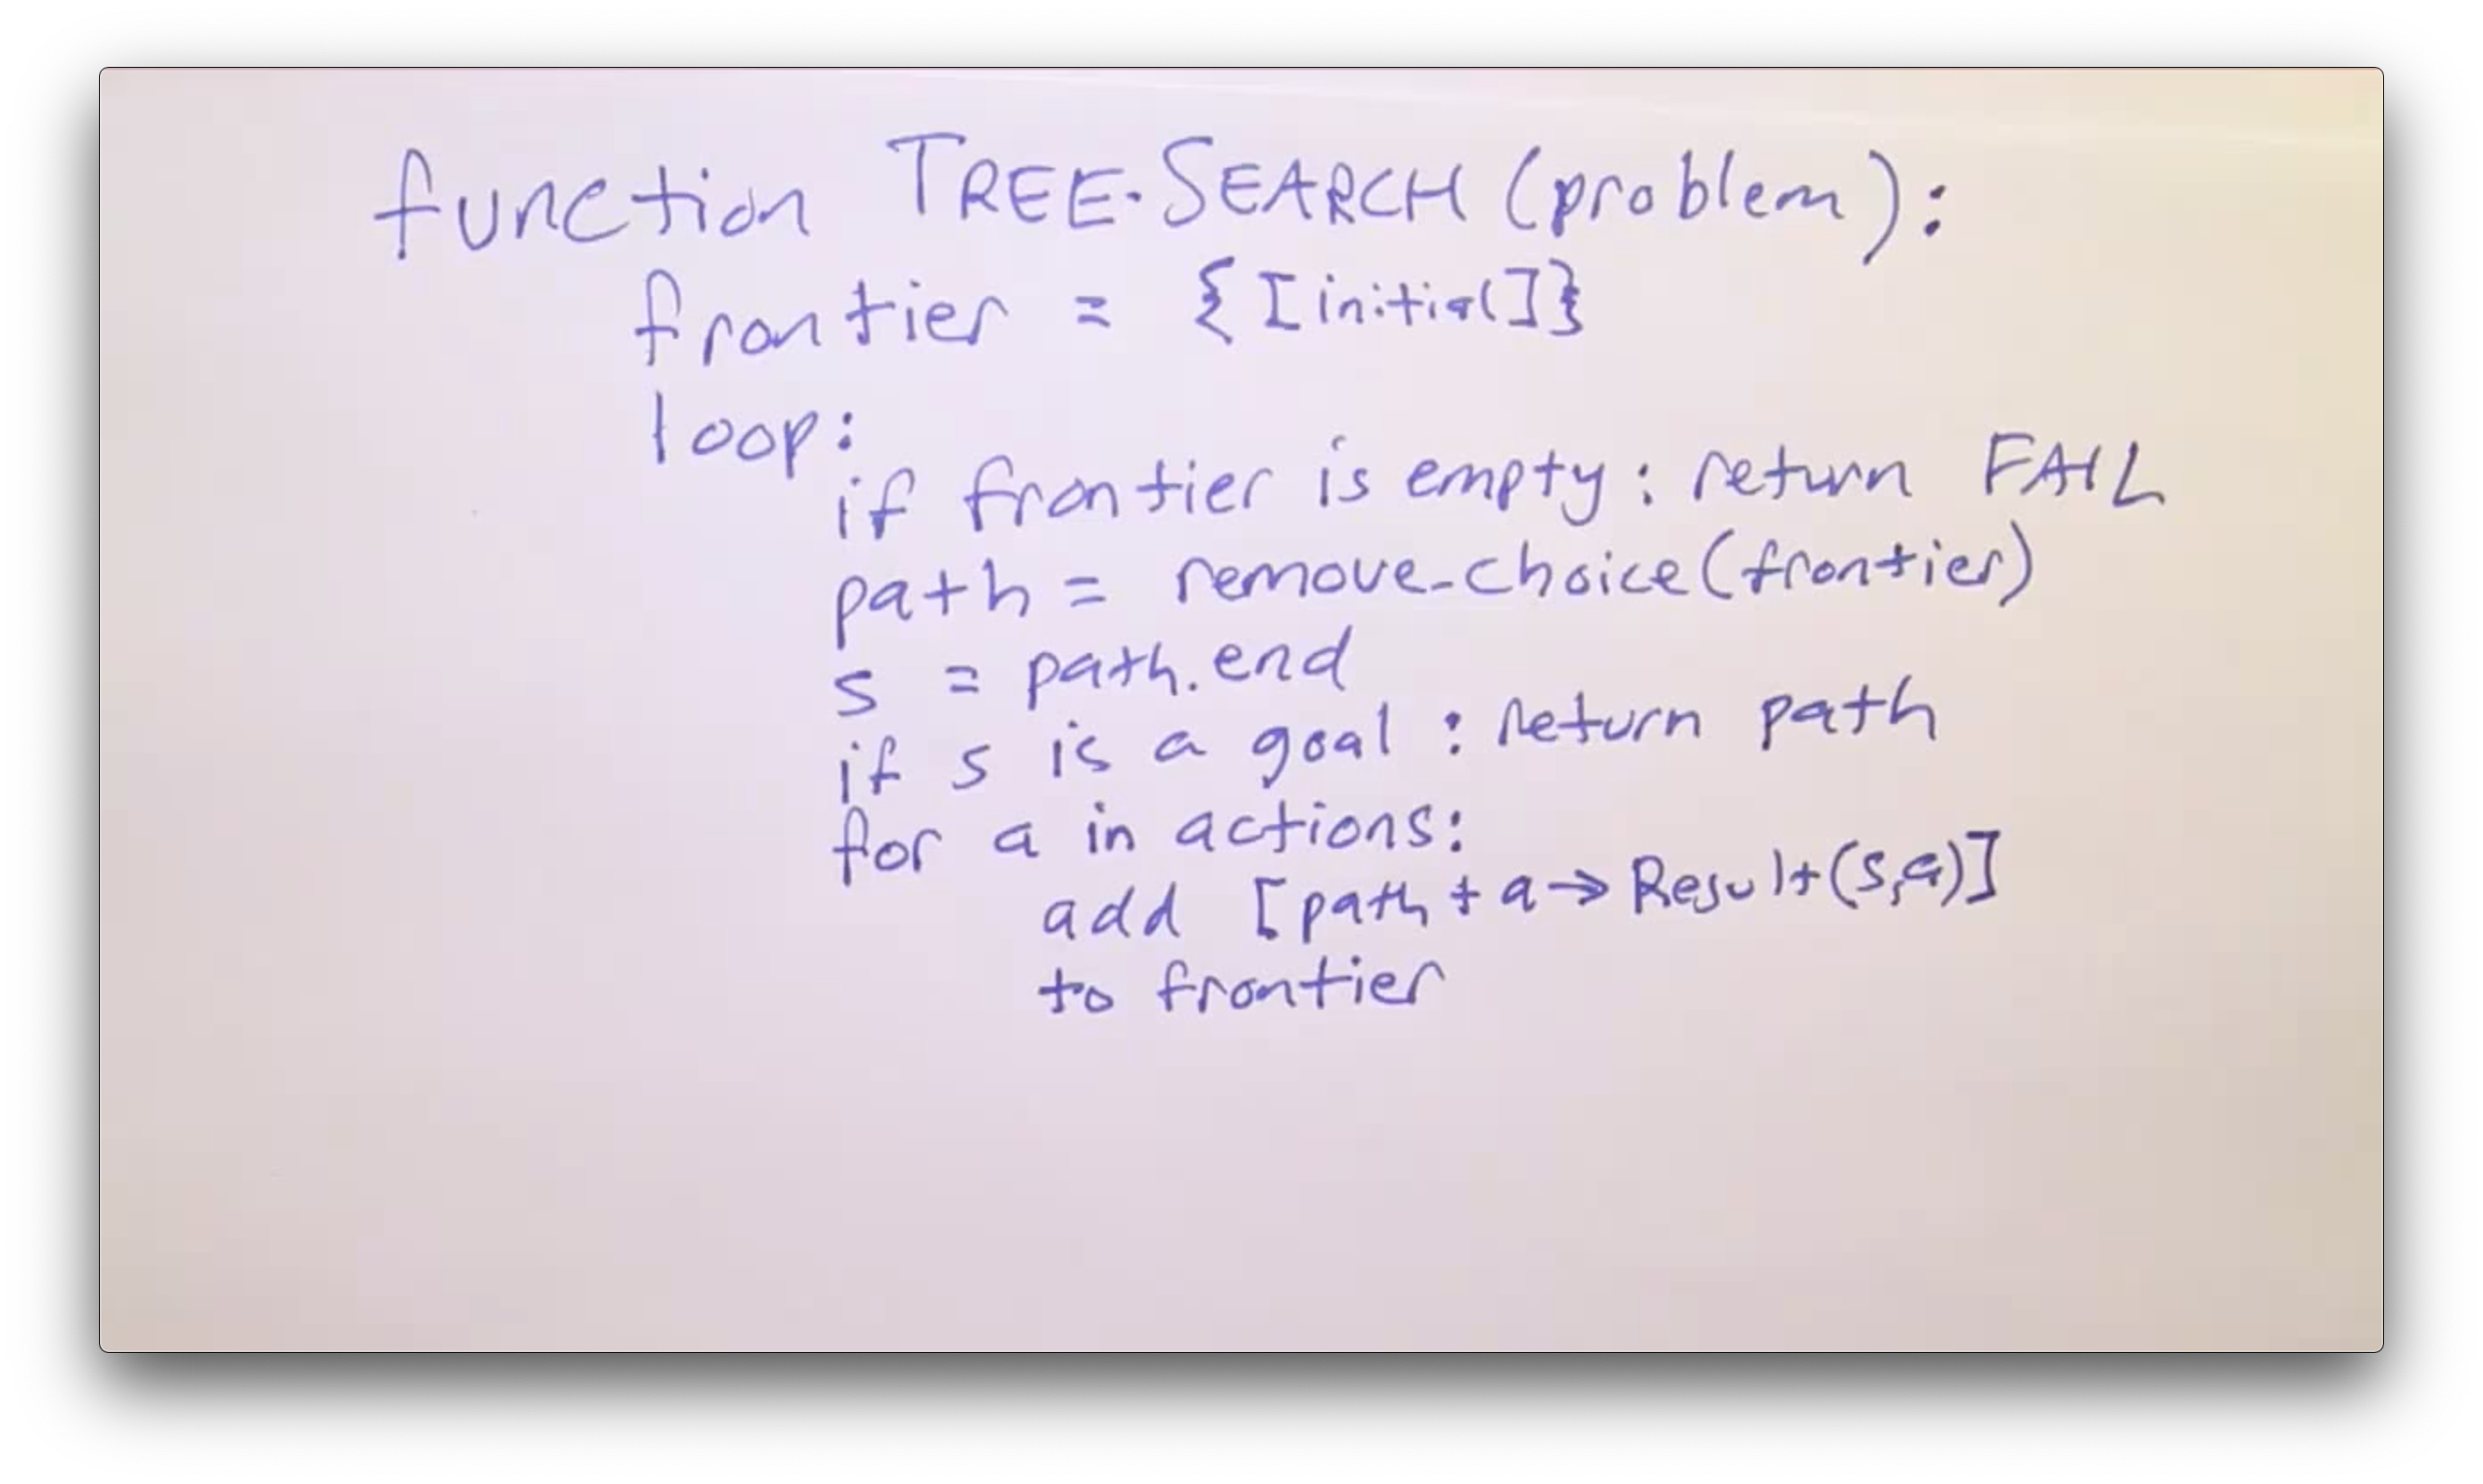 function TREE-SEARCH (problem):
frontier = {[initial]}
loop:
if frontier is empty: return FAIL
path = remove-choice(frontier)
s = path.end
if s is a goal: return path
for a in actions:
add [path + a → Result(s,a)]
to frontier